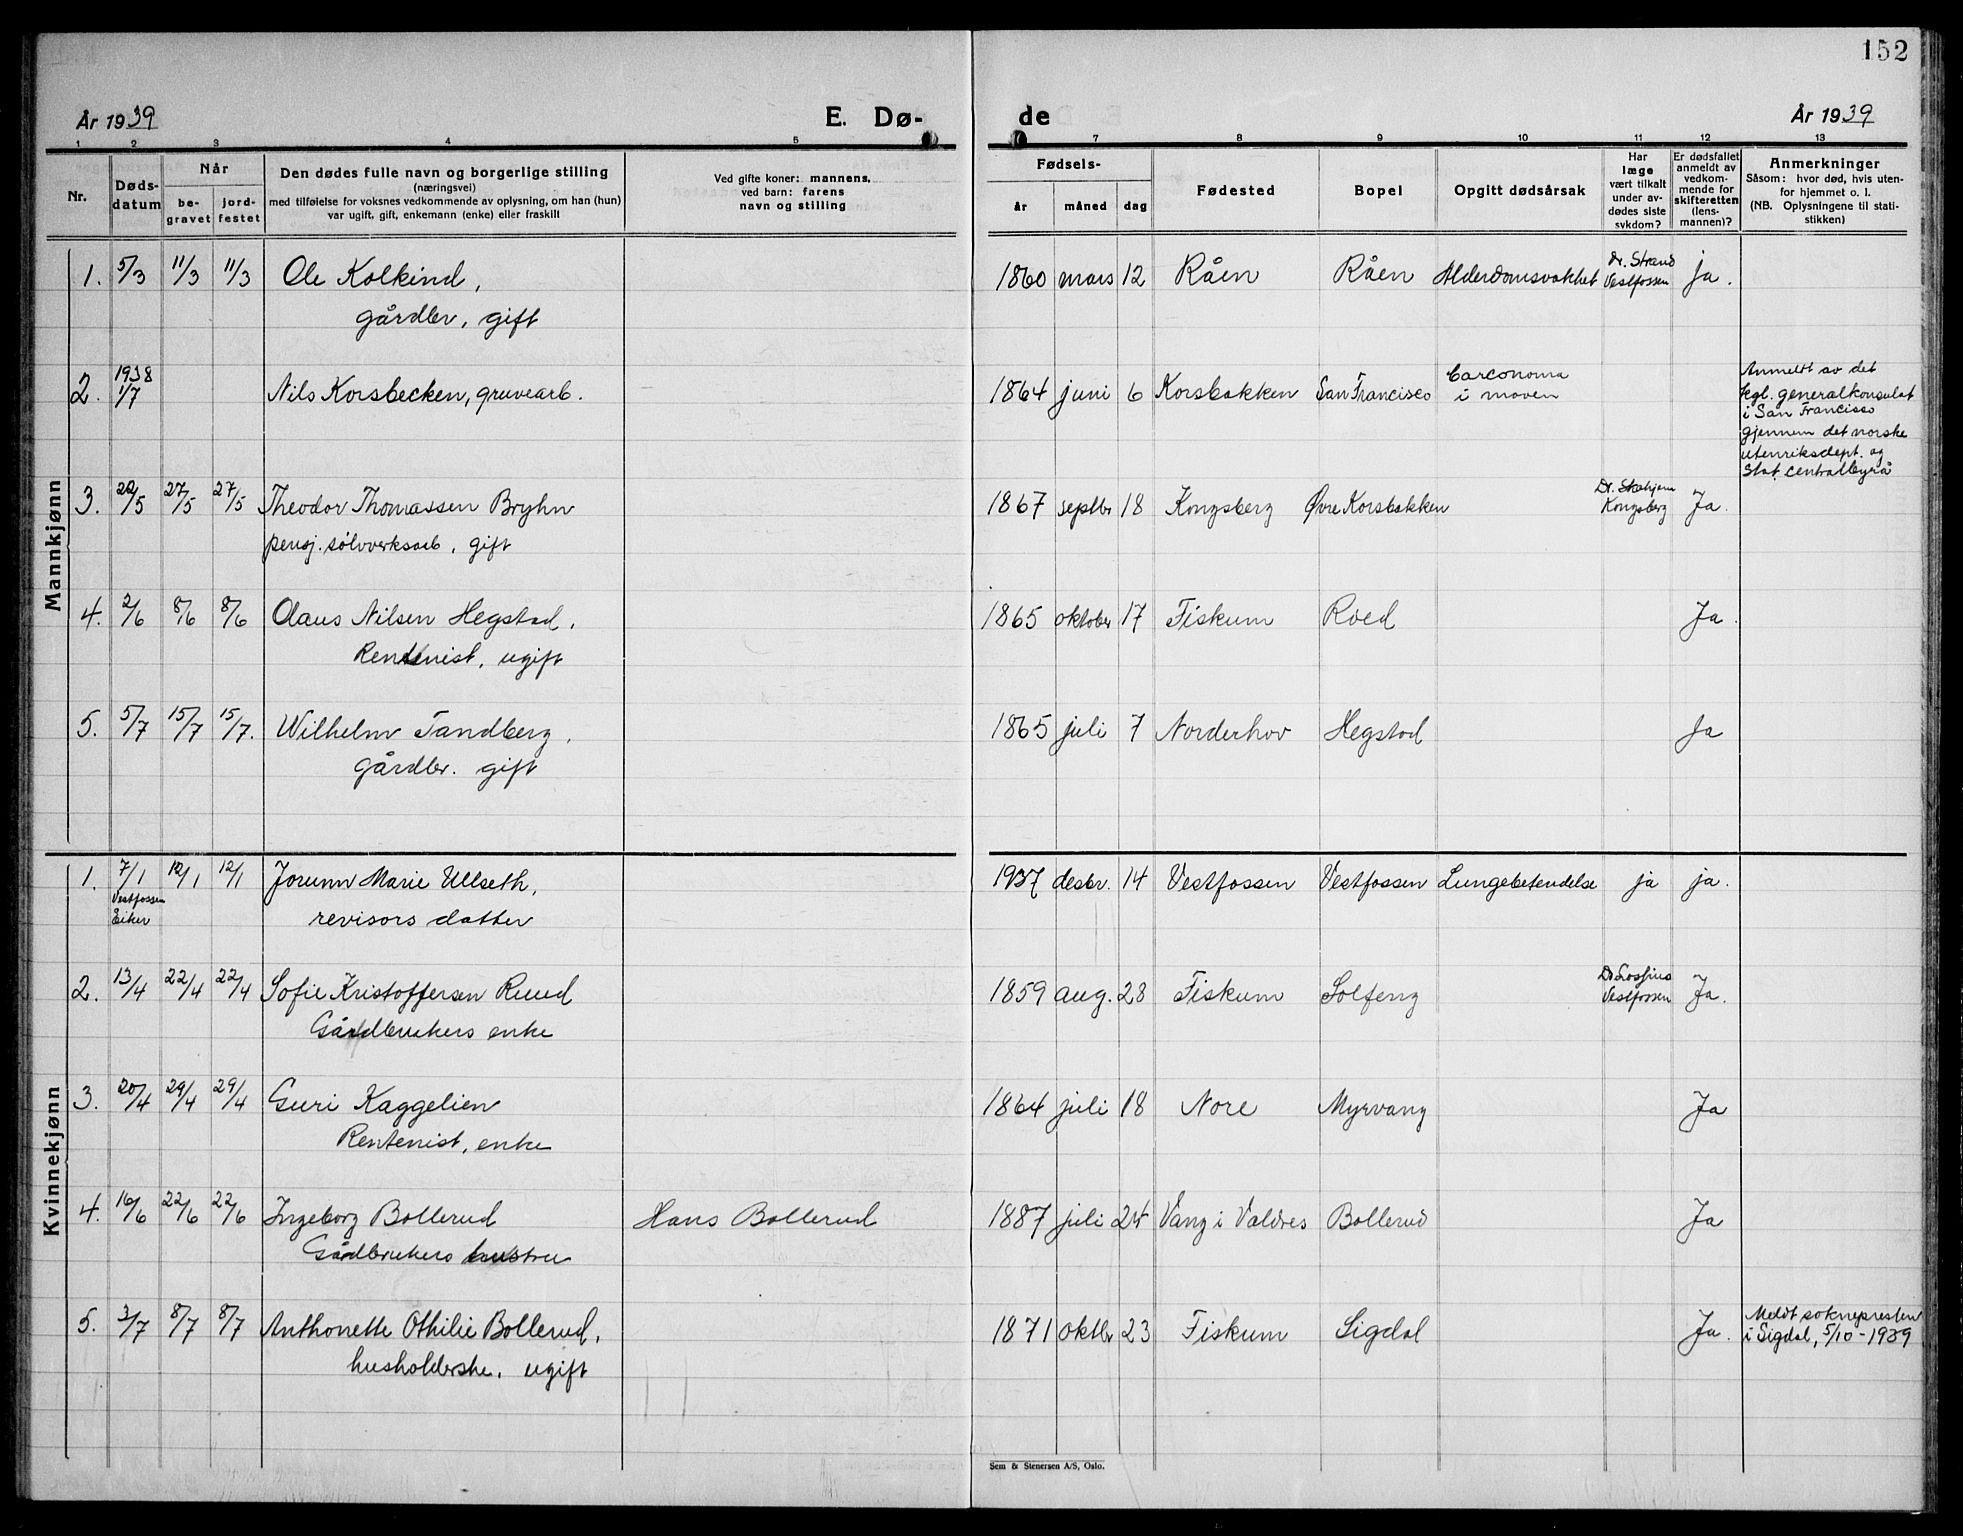 152
År 1939 E. Dø- de År 1939
1 2 3 4 5 7 8 9 10 11 12 13
Nr.
Døds-
datum
Når
be-
gravet
jord-
festet
Den dødes fulle navn og borgerlige stilling
(næringsvei)
med tilføielse for voksnes vedkommende av oplysning, om han (hun)
var ugift, gift, enkemann (enke) eller fraskilt
Ved gifte koner: mannens,
ved barn: farens
navn og stilling
Fødsels-
år måned dag
Fødested
Bopel
Opgitt dødsårsak
Har
læge
vært tilkalt
under av-
dødes siste
sykdom?
Er dødsfallet
anmeldt av
vedkom-
mende for
skifteretten
(lens-
mannen)?
Anmerkninger
Såsom: hvor død, hvis uten-
for hjemmet o. l.
(NB. Oplysningene til stati-
stikken)
Mannkjønn
1. 5/3 11/3 11/3 Ole Kolkind, 1860 mars 12 Råen Råen Alderdomsvakhet Dr. Strand Vestfossen ja.
gårdbr, gift
2. 1938 1/7 Nils Korsbecken, gruvearb. 1864 juni 6 Korsbakken San Francisco Carconoma
i maven
Anmeldt av det
kgl. generalkonsulat
i San Francisco
gjennem det norske
utenriksdept. og
Stat. Centralbyrå
3. 22/5 27/5 27/5 Theodor Thomassen Bryhn 1867 septbr 18 Kongsberg Øvre Korsbakken Dr. Kongsberg Ja.
pensj. sølvverksarb, gift
4. 2/6 8/6 8/6 Olaus Nilsen Hegstad, 1865 oktober 17 Fiskum Roed Ja.
Rentenist, ugift
5. 5/7 15/7 15/7. Wilhelm Tandberg, 1865 juli 7 Norderhov Hegstad Ja
gårdbr. gift
Kvinnekjønn
1. 7/1 12/1 12/1 Jorunn Marie Ullseth, 1937 desbr. 14 Vestfossen Vestfossen Lungebetendelse ja ja.
Vestfossen
Eiker
revisors datter
2. 13/4 22/4 22/4 Sofie Kristoffersen Ruud 1859 aug. 28 Fiskum Solfeng Dr Lossius Vestfossen Ja.
Gårdbrukers enke
3. 20/4 29/4 29/4 Guri Kaggelien 1864 juli 18 Nore Myrvang Ja
Rentenist, enke
4. 16/6 22/6 22/6 Ingeborg Bollerud Hans Bollerud 1887 juli 24 Vang i Valdres Bollerud Ja
Gårdbrukers hustru
5. 3/7 8/7 8/7 Anthonette Othilie Bollerud, 1871 oktbr 23 Fiskum Sigdal Ja. Meldt soknepresten
i Sigdal, 5/10-1939
husholderske, ugift
Sem & Stenersen A/S, Oslo.